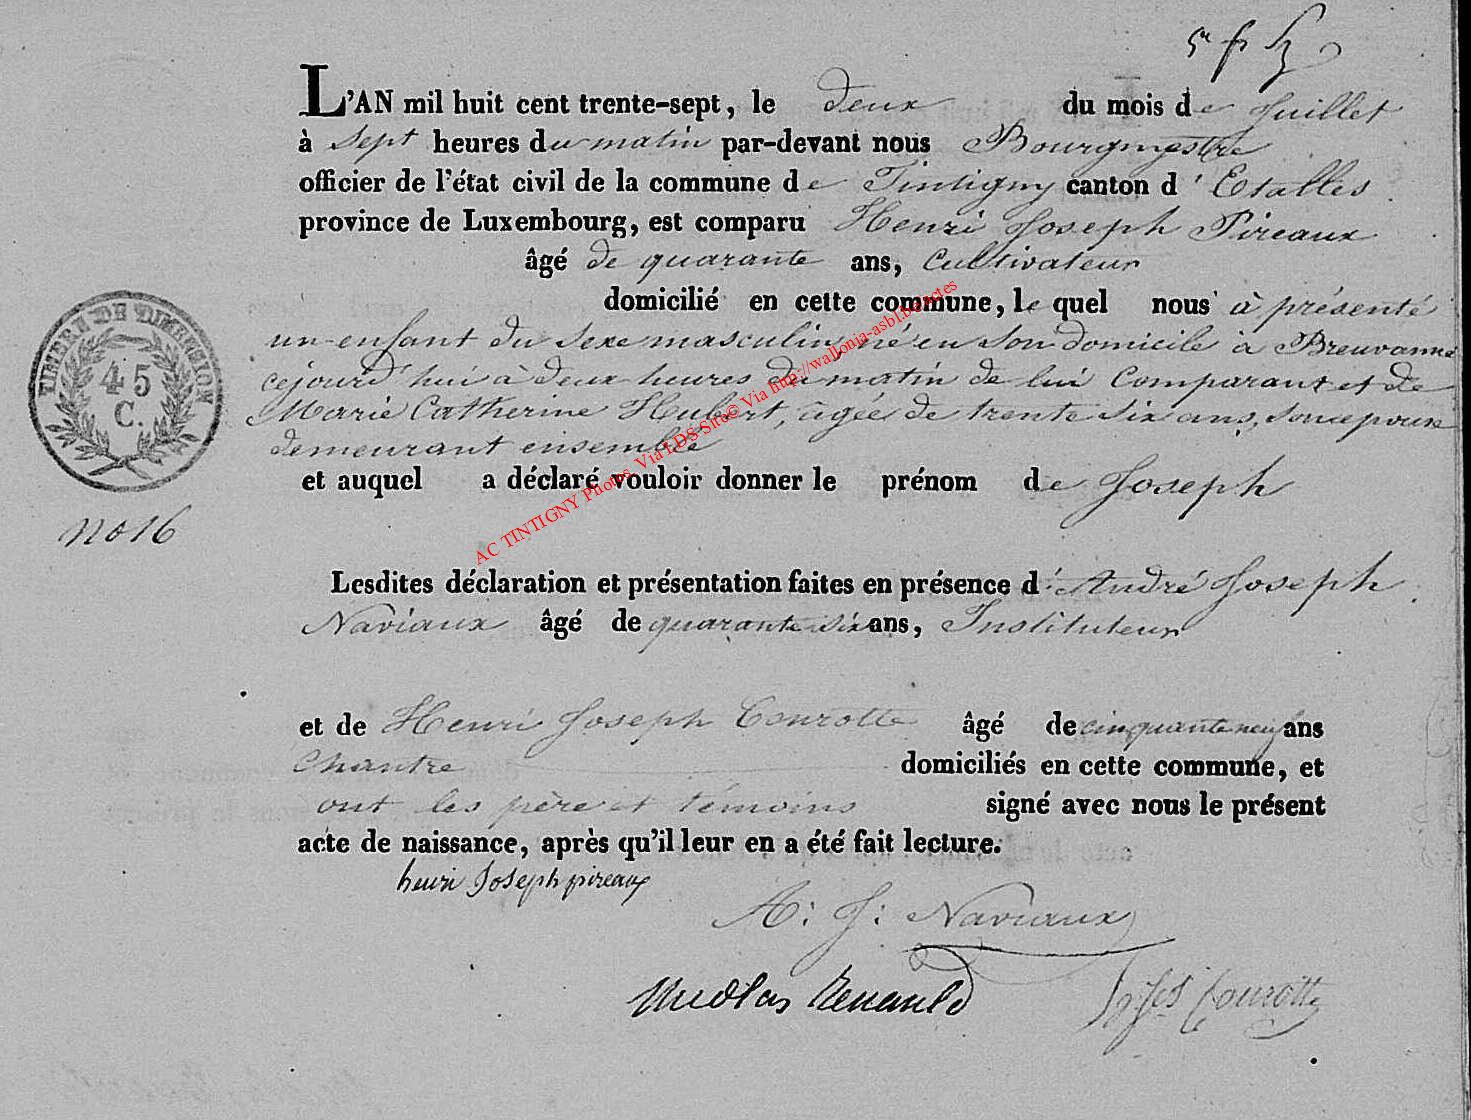 5e f
L'AN mil huit cent trente-sept, le deux du mois de Juillet
à sept heures du matin par-devant nous Bourgmestre
officier de l'état civil de la commune de Tintigny canton d' Etalles
province de Luxembourg, est comparu Henri Joseph Pireaux
âgé de quarante ans, Cultivateur
domicilié en cette commune, le quel nous à présenté
un enfant du sexe masculin, né en son domicile à Breuvanne
cejourd'hui à deux heures du matin de lui Comparant et de
Marie Catherine Hubert, âgée de trente six ans, son epouse
demeurant ensemble
et auquel a déclaré vouloir donner le prénom de Joseph
TIMBRE DE DIMENSION
45
C.
no 16
Lesdites déclaration et présentation faites en présence d' André Joseph
Naviaux âgé de quarante six ans, Instituteur
et de Henri Joseph Courotte âgé de cinquante neuf ans
Chantre domiciliés en cette commune, et
ont les père et témoins signé avec nous le présent
acte de naissance, après qu'il leur en a été fait lecture.
henri Joseph pireaux
A: J: Naviaux
Nicolas Renauld
Courotte
AC TINTIGNY Photos Via LDS Site© Via http://wallonia-asbl.be/actes